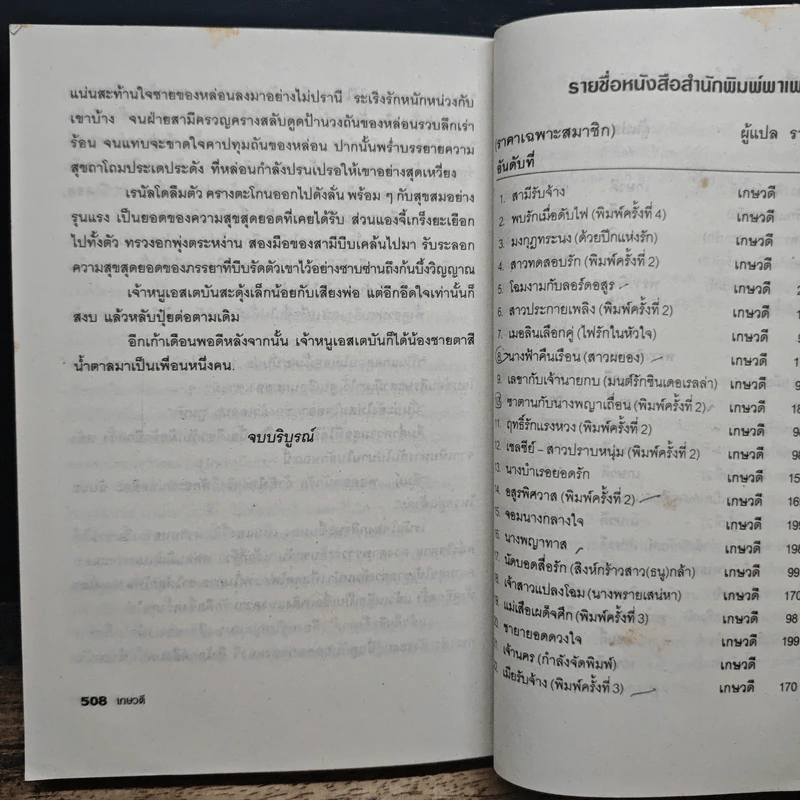 แน่นสะท้านใจชายของหล่อนลงมาอย่างไม่ปรานี ระเริงรักหนักหน่วงกับ
เขาบ้าง จนฝ่ายสามีครวญครางสลับดูดป้านวงถันของหล่อนรวบลึกเร่า
ร้อน จนแทบจะขาดใจคาปทุมถันของหล่อน ปากนั้นพร่ำบรรยายความ
สุขถาโถมประเดประดัง ที่หล่อนกำลังปรนเปรอให้เขาอย่างสุดเหวี่ยง
เรนัลโดลืมตัว ครางตะโกนออกไปดังลั่น พร้อม ๆ กับสุขสมอย่าง
รุนแรง เป็นยอดของความสุขสุดยอดที่เคยได้รับ ส่วนแองจี้เกร็งยะเยือก
ไปทั้งตัว ทรวงอกพุ่งตระหง่าน สองมือของสามีบีบเคล้นไปมา รับระลอก
ความสุขสุดยอดของภรรยาที่บีบรัดตัวเขาไว้อย่างซาบซ่านถึงก้นบึ้งวิญญาณ
เจ้าหนูเอสเตบันสะดุ้งเล็กน้อยกับเสียงพ่อ แต่อีกอึดใจเท่านั้นก็
สงบ แล้วหลับปุ๋ยต่อตามเดิม
อีกเก้าเดือนพอดีหลังจากนั้น เจ้าหนูเอสเตบันก็ได้น้องชายตาสี
น้ำตาลมาเป็นเพื่อนหนึ่งคน.
จบบริบูรณ์
508 เกษวดี
รายชื่อหนังสือสำนักพิมพ์พาเพ
(ราคาเฉพาะสมาชิก) ผู้แปล รา
อันดับที่
1. สามีรับจ้าง เกษวดี
2. พบรักเมื่อดับไฟ (พิมพ์ครั้งที่ 4) เกษวดี
3. มงกุฎทระนง (ด้วยปีกแห่งรัก) เกษวดี
4. สาวทดสอบรัก (พิมพ์ครั้งที่ 2) เกษวดี
5. โฉมงามกับลอร์ดอสูร เกษวดี 2
6. สาวประกายเพลิง (พิมพ์ครั้งที่ 2) เกษวดี
7. เมอลินเลือกคู่ (ไฟรักในหัวใจ) เกษวดี
8. นางฟ้าคืนเรือน (สาวผยอง) เกษวดี 1
9. เลขากับเจ้านายกบ (มนต์รักซินเดอเรลล่า) เกษวดี 9
ซาตานกับนางพญาเถื่อน (พิมพ์ครั้งที่ 2) เกษวดี 18
11. ฤทธิ์รักแรงหวง (พิมพ์ครั้งที่ 2) เกษวดี 98
12. เชลซีย์ – สาวปราบหนุ่ม (พิมพ์ครั้งที่ 2) เกษวดี 98
13. นางบำเรอยอดรัก เกษวดี 15
14. อสูรพิศวาส (พิมพ์ครั้งที่ 2) เกษวดี 16
15. จอมนางกลางใจ เกษวดี 199
16. นางพญาทาส เกษวดี 198
17. นัดบอดสื่อรัก (สิงห์กร้าวสาว(ธนู)กล้า) เกษวดี 99
18. เจ้าสาวแปลงโฉม (นางพรายเสน่หา) เกษวดี 170
19. แม่เสือเผด็จศึก (พิมพ์ครั้งที่ 3) เกษวดี 98
ชายายอดดวงใจ เกษวดี 199
เจ้านคร (กำลังจัดพิมพ์) เกษวดี
เมียรับจ้าง (พิมพ์ครั้งที่ 3) เกษวดี 170